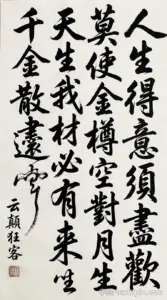 人生得意須盡歡
莫使金樽空對月生
天生我材必有来生
千金散盡還
云顛狂客